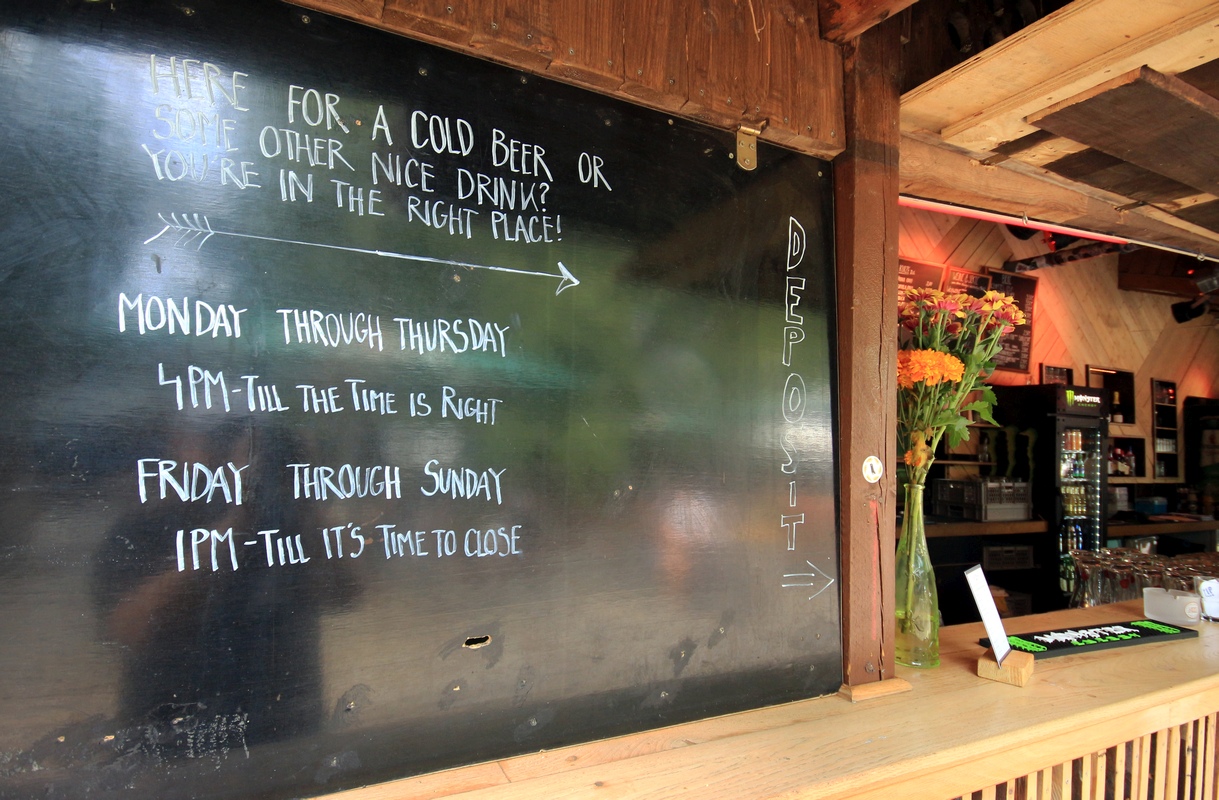 HERE FOR A COLD BEER OR
SOME OTHER NICE DRINK?
YOU'RE IN THE RIGHT PLACE!
MONDAY THROUGH THURSDAY
4PM-TILL THE TIME IS RIGHT
FRIDAY THROUGH SUNDAY
1PM-TILL IT'S TIME TO CLOSE
DEPOSIT
MONSTER
MONSTER